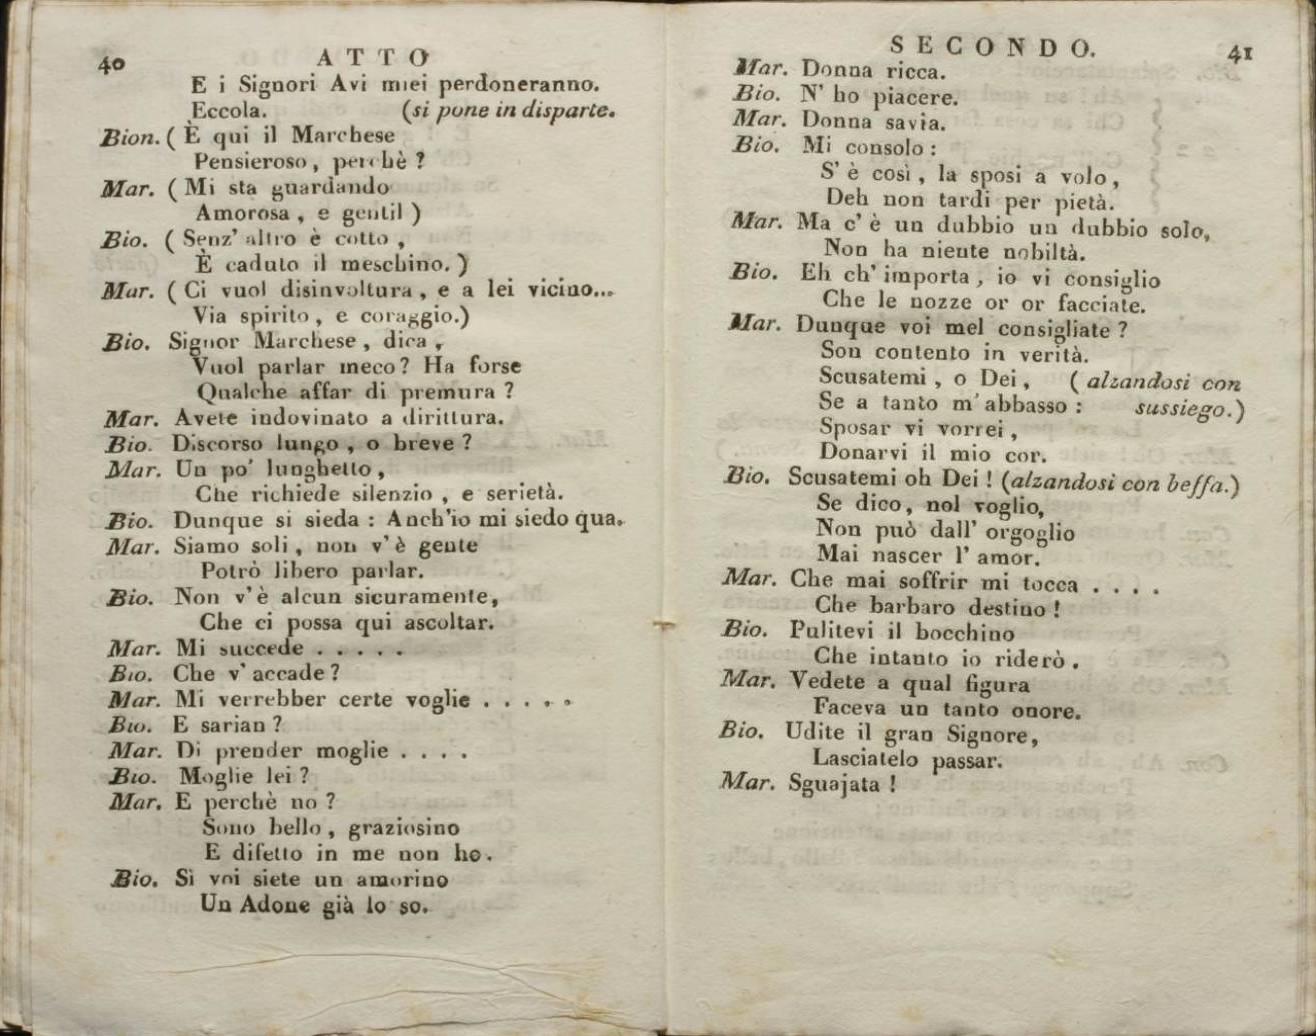 40
ATTO
E i Signori Avi miei perdoneranno.
Eccola. (si pone in disparte.
Bion. ( È qui il Marchese
Pensieroso, perchè ?
Mar. ( Mi sta guardando
Amorosa, e gentil )
Bio. ( Senz' altro è cotto,
È caduto il meschino. )
Mar. ( Ci vuol disinvoltura, e a lei vicino...
Via spirito, e coraggio.)
Bio. Signor Marchese, dica,
Vuol parlar meco? Ha forse
Qualche affar di premura ?
Mar. Avete indovinato a dirittura.
Bio. Discorso lungo, o breve ?
Mar. Un po' lunghetto,
Che richiede silenzio, e serietà.
Bio. Dunque si sieda : Anch'io mi siedo qua.
Mar. Siamo soli, non v'è gente
Potrò libero parlar.
Bio. Non v'è alcun sicuramente,
Che ci possa qui ascoltar.
Mar. Mi succede . . . . .
Bio. Che v' accade ?
Mar. Mi verrebber certe voglie . . . . .
Bio. E sarian ?
Mar. Di prender moglie . . . .
Bio. Moglie lei ?
Mar. E perchè no ?
Sono bello, graziosino
E difetto in me non ho.
Bio. Sì voi siete un amorino
Un Adone già lo so.
SECONDO.
41
Mar. Donna ricca.
Bio. N' ho piacere.
Mar. Donna savia.
Bio. Mi consolo :
S' è così, la sposi a volo,
Deh non tardi per pietà.
Mar. Ma c' è un dubbio un dubbio solo,
Non ha niente nobiltà.
Bio. Eh ch' importa, io vi consiglio
Che le nozze or or facciate.
Mar. Dunque voi mel consigliate ?
Son contento in verità.
Scusatemi, o Dei, ( alzandosi con
Se a tanto m' abbasso : sussiego.)
Sposar vi vorrei,
Donarvi il mio cor.
Bio. Scusatemi oh Dei ! (alzandosi con beffa.)
Se dico, nol voglio,
Non può dall' orgoglio
Mai nascer l' amor.
Mar. Che mai soffrir mi tocca . . . .
Che barbaro destino !
Bio. Pulitevi il bocchino
Che intanto io riderò.
Mar. Vedete a qual figura
Faceva un tanto onore.
Bio. Udite il gran Signore,
Lasciatelo passar.
Mar. Sguajata !